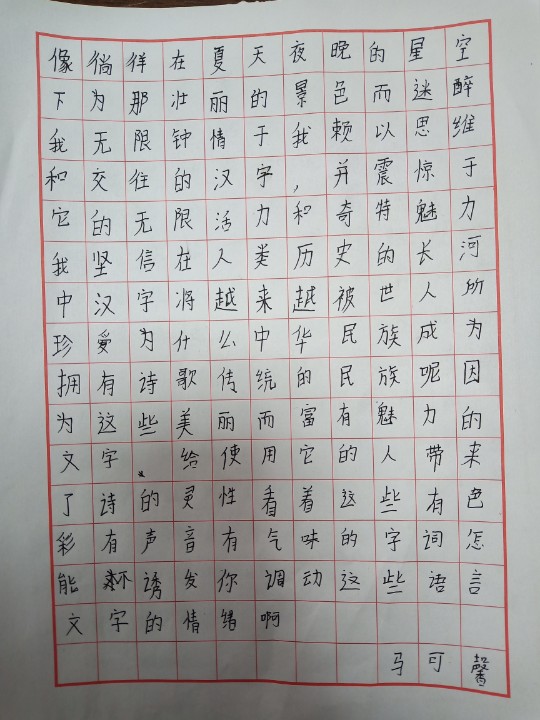 像徜徉在夏天夜晚的星空
下为那壮丽的景色而迷醉
我无限钟情于我赖以思维
和交往的汉字，并震惊于
它的无限活力和奇特魅力
我坚信在人类历史的长河
中汉字将越来越被世人所
珍爱为什么中华民族成为
拥有诗歌传统的民族呢因
为这些美丽而富有魅力的
文字。给使用它的人带来
了诗的灵性看着这些有色
彩有声音有气味的字词怎
能不诱发你调动这些语言
文字的情绪啊
马可馨